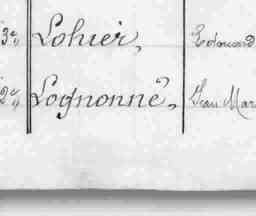 3e Lohier, Edouard
2e Lognonné, Jean Mar